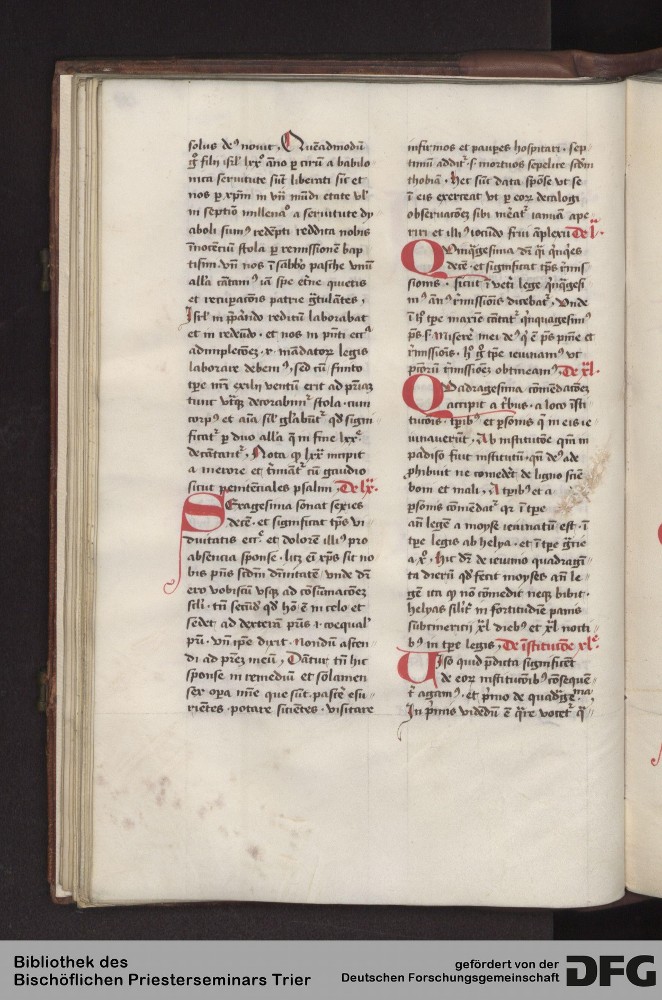 solus deꝰ nouit . Quēadmodū
gͦ filij isrl̄ lxxͦ āno ꝑ cirū a babilo
nica seruitute sūt liberati sic et
nos ꝑ xp̄m in vij mūdi etate vl̓
in septīo millenaͦ a seruitute dy
aboli sumꝰ redēpti reddita nobis
īnocēciū stola ꝑ remissionē bap
tism̄ vn̄ nos ī sabb̄o pasche vnū
all̓a cātamꝰ iā spe et̓ne quietis
et recuꝑacōis patrie gͣtulātes ,
Isrl̄ in ꝑando reditū laborabat
et in redeūdo . et nos in pn̄ti
adimplecōeꝫ . x . mādatoꝝ legis
laborare debemꝰ , sed cū finito
tꝑe nr̄i exilij ventū erit ad pr̄iaꝫ
tunc vtͣqꝫ decorabimͬ stola . cum
corpꝰ et aīa sil̓ gl̓abūtͬ qd̓ signi
ficatͬ ꝑ duo all̓a q̄ in fine lxxͤ
decātantͬ , Nota ꝙ lxx incipit
a merore et t̓minatͬ cū gaudio
sicut penitenciales psalmi , De lx .
Sexagesima sonat sexies
decē . et significat tp̄s vi
duitatis et dolorē illiꝰ pro
absencia sponse . licꝫ em̄ xp̄s sit no
bis pn̄s scd̓m diuinitatē vnde dr̄
ero vobiscū vsqꝫ ad cōsumacōeꝫ
scl̓i . tn̄ secūd̓ qd̓ hō ē in celo et
sedet ad dexterā
pr̄i . vn̄ ip̄e dixit . Nondū ascen
di ad pr̄eꝫ meū , Dātur tn̄ hic
sponse in remediū et solamen
sex oꝑa mīe que sūt . pasc̓e esu
rientes . potare sicientes . visitare
infirmos et pauꝑes hospitari . sep
timū additͬ . s . mortuos sepelire scd̓m
thobiā . Hec sūt data spōse vt se
ī eis exerceat vt ꝑ eoꝝ decalogi
obseruacōeꝫ sibi mereatͬ ianuā ape
riri et illiꝰ iocūdo frui āplexu De l .
Quīqͣgesima dr̄ qͣ qͥnqͥes
decē . et significat tp̄s r̓mis
sionis . sicut ī vet̓i lege qͥnqͣgesi
mꝰ ānꝰ r̓missiōis dicebatͬ . Vnde
ī hͦ tꝑe maxīe cātatͬ qͥnquagesimꝰ
ps̄ . s . Miser̓e mei deꝰ qͥ ē ps̄ pnīe et
r̓missiōis . hͦ gͦ tꝑe ieiunamꝰ vt
pctōrū r̓missioeꝫ obtineamꝰ , De xl .
Quadragesima cōmēdacōeꝫ
accipit a tͥbꝰ . a loco īsti
tucōis . tꝑibꝰ et ꝑsonis q̄ in eis ie
iunauerūt , Ab institucōe qm̄ in
padiso fuit institutū . qn̄ deꝰ ade
ꝓhibuit ne comedet̓ de ligno sciē
boni et mali , A tꝑibꝰ et a
ꝑsonis cōmēdatͬ qꝛ ī tꝑe
an̄ legē a moyse ieiunatū est . ī
tꝑe legis ab helya . et ī tꝑe gr̄cie
a . xͦ . Hic dr̄ de ieiunio quadragīͣ
ta dierū qd̓ fecit moyses an̄ le
gē ita ꝙ nō comedit neqꝫ bibit .
helyas sil̓r in fortitudīe panis
subcinericij xl diebꝰ et xl nocti
bꝰ in tꝑe legis , De īstitucōe xlͤ .
Uiso quid p̄dicta significēt
de eoꝝ institucōibꝰ cōsequē
t̓ agamꝰ . et pͥmo de quadͣgeͫᵃ ,
In pͥmis videndū ē qͣre vocetͬ qͣ
Bibliothek des
Bischöflichen Priesterseminars Trier
gefördert von der
Deutschen Forschungsgemeinschaft
DFG